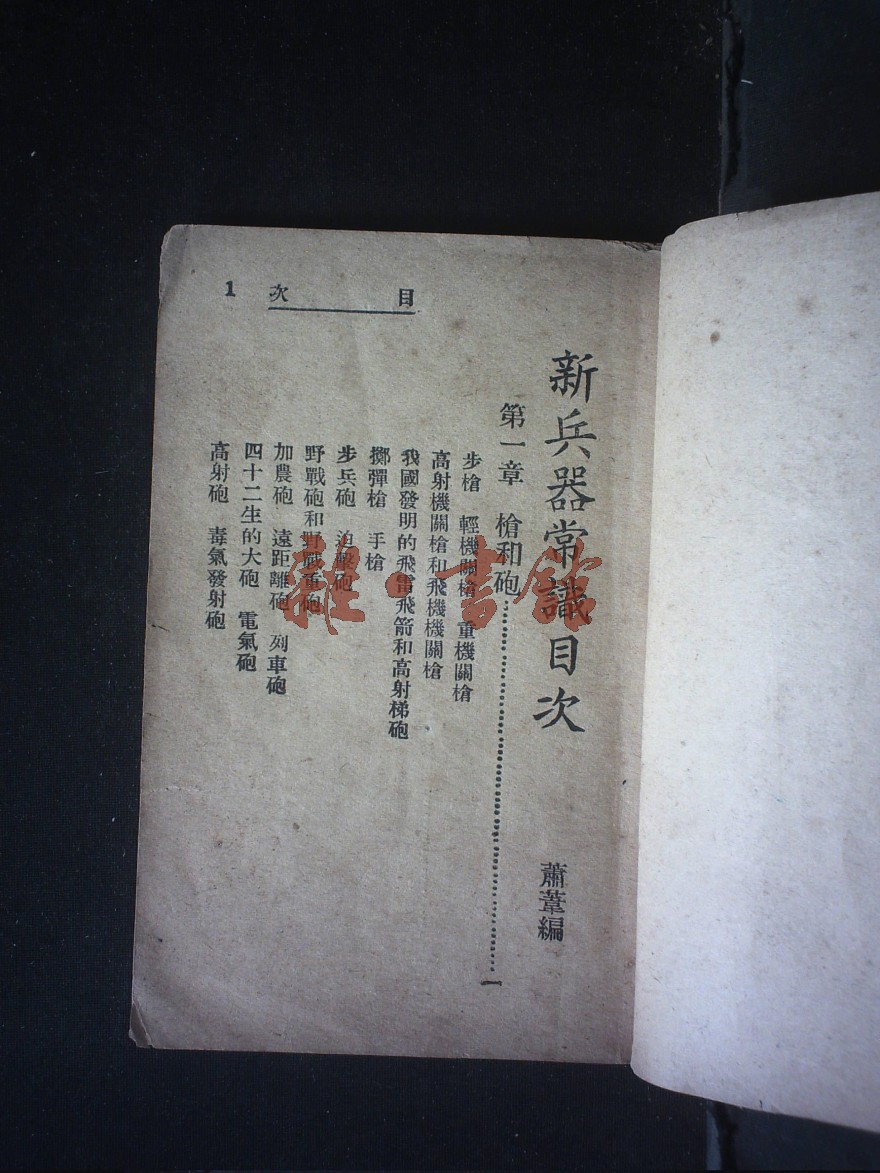 目次 1
新兵器常識目次 蕭葦編
第一章 槍和砲……一
步槍 輕機關槍 重機關槍
高射機關槍和飛機機關槍
我國發明的飛雷飛箭和高射梯砲
擲彈槍 手槍
步兵砲 迫擊砲
野戰砲和野戰重砲
加農砲 遠距離砲 列車砲
四十二生的大砲 電氣砲
高射砲 毒氣發射砲
雜·書館